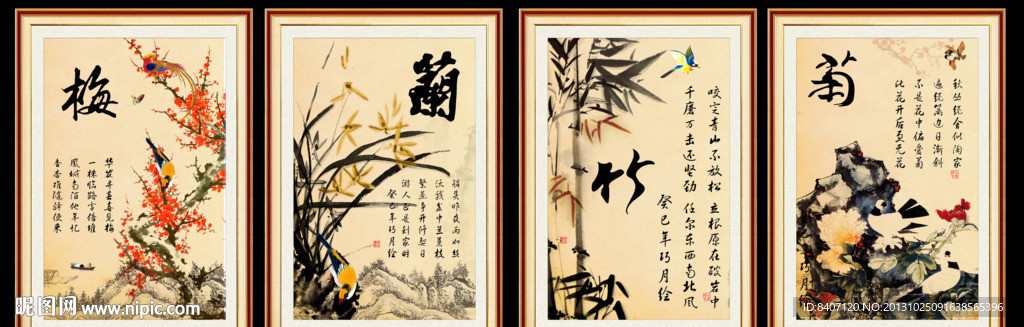 梅
华发寻春喜见梅
一株临路雪倍堆
凤城南陌他年忆
香杳难随驿使来
蘭
昨夜雨如丝
沃我盆中兰蕙枝
繁蕊争开修禊日
游人 是到家时
癸巳年巧月绘
竹
咬定青山不放松 立根原在破岩中
千磨万击还坚劲 任尔东西南北风
癸巳年巧月绘
菊
秋丛绕舍似陶家
遍绕篱边日渐斜
不是花中偏爱菊
此花开后更无花
巧月绘
昵图网 www.nipic.com
ID:8407120 NO:20131025091638565396